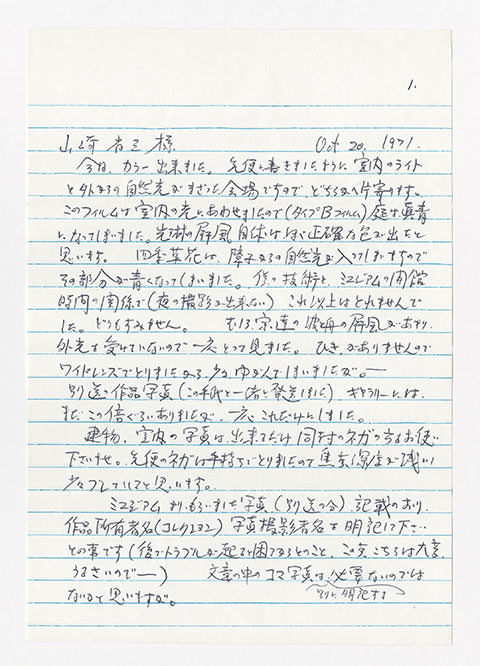 1.
山崎省三様 Oct 20. 1971.
今日、カラー出来ました。先便に書きましたように室内のライト
と外からの自然光がまざった会場ですので、どちらかへ片寄ります。
このフィルムは室内の光にあわせましたので(タイプBフィルム)庭は真青
になってしまいました。光琳の屏風自体はほぼ正確な色が出たと
思います。 四季草花は、障子からの自然光が入ってしまいますので
その部分が青くなってしまいました。僕の技術と、ミュジアムの開館
時間の関係で(夜の撮影が出来ない) これ以上はとれませんで
した。どうもすみません。 もう1つ、宗達の波の屏風があり、
外光を受けていないので一応とって見ました。ひきがありませんので
ワイドレンズでとりましたから、少々ゆがんでしまいましたが。―
別送の作品写真(この手紙と一緒に発送しました) ギャラリーには、
まだこの倍ぐらいありましたが、一応これだけにしました。
建物、室内の写真は、出来るだけ同封のネガの方をお使い
下さいませ。先便のネガは手持ちでとりましたので焦点深度が浅い
少々ブレていると思います。
ミュジアムよりもらいました写真(別送の分)、記載のあり
作品所有者名(コレクション) 写真撮影者名を明記して下さい
との事です(後でトラブルが起ると困るからとのこと、この点こちらは大変
うるさいので―) 文章の中のコマ写真は、必要ないのでは
別に明記する
ないかと思いますが。